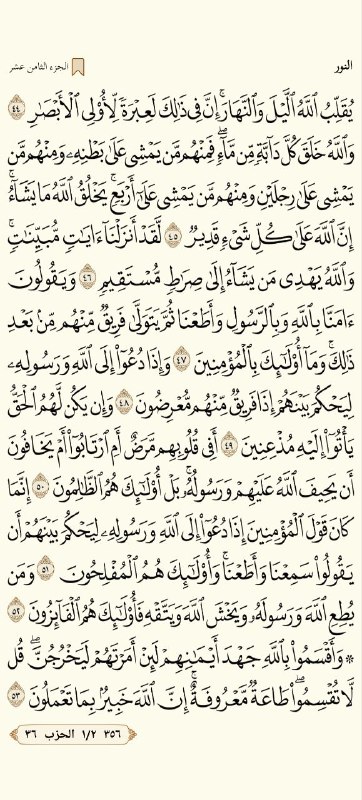 النور الجزء الثامن عشر
يُقَلِّبُ ٱللَّهُ ٱلَّيۡلَ وَٱلنَّهَارَۚ إِنَّ فِي ذَٰلِكَ لَعِبۡرَةٗ لِّأُوْلِي ٱلۡأَبۡصَٰرِ ٤٤
وَٱللَّهُ خَلَقَ كُلَّ دَآبَّةٖ مِّن مَّآءٖۖ فَمِنۡهُم مَّن يَمۡشِي عَلَىٰ بَطۡنِهِۦ وَمِنۡهُم مَّن
يَمۡشِي عَلَىٰ رِجۡلَيۡنِ وَمِنۡهُم مَّن يَمۡشِي عَلَىٰٓ أَرۡبَعٖۚ يَخۡلُقُ ٱللَّهُ مَا يَشَآءُۚ
إِنَّ ٱللَّهَ عَلَىٰ كُلِّ شَيۡءٖ قَدِيرٞ ٤٥ لَّقَدۡ أَنزَلۡنَآ ءَايَٰتٖ مُّبَيِّنَٰتٖۚ
وَٱللَّهُ يَهۡدِي مَن يَشَآءُ إِلَىٰ صِرَٰطٖ مُّسۡتَقِيمٖ ٤٦ وَيَقُولُونَ
ءَامَنَّا بِٱللَّهِ وَبِٱلرَّسُولِ وَأَطَعۡنَا ثُمَّ يَتَوَلَّىٰ فَرِيقٞ مِّنۡهُم مِّنۢ بَعۡدِ
ذَٰلِكَۚ وَمَآ أُوْلَٰٓئِكَ بِٱلۡمُؤۡمِنِينَ ٤٧ وَإِذَا دُعُوٓاْ إِلَى ٱللَّهِ وَرَسُولِهِۦ
لِيَحۡكُمَ بَيۡنَهُمۡ إِذَا فَرِيقٞ مِّنۡهُم مُّعۡرِضُونَ ٤٨ وَإِن يَكُن لَّهُمُ ٱلۡحَقُّ
يَأۡتُوٓاْ إِلَيۡهِ مُذۡعِنِينَ ٤٩ أَفِي قُلُوبِهِم مَّرَضٌ أَمِ ٱرۡتَابُوٓاْ أَمۡ يَخَافُونَ
أَن يَحِيفَ ٱللَّهُ عَلَيۡهِمۡ وَرَسُولُهُۥۚ بَلۡ أُوْلَٰٓئِكَ هُمُ ٱلظَّٰلِمُونَ ٥٠ إِنَّمَا
كَانَ قَوۡلَ ٱلۡمُؤۡمِنِينَ إِذَا دُعُوٓاْ إِلَى ٱللَّهِ وَرَسُولِهِۦ لِيَحۡكُمَ بَيۡنَهُمۡ أَن
يَقُولُواْ سَمِعۡنَا وَأَطَعۡنَاۚ وَأُوْلَٰٓئِكَ هُمُ ٱلۡمُفۡلِحُونَ ٥١ وَمَن
يُطِعِ ٱللَّهَ وَرَسُولَهُۥ وَيَخۡشَ ٱللَّهَ وَيَتَّقۡهِ فَأُوْلَٰٓئِكَ هُمُ ٱلۡفَآئِزُونَ ٥٢
۞ وَأَقۡسَمُواْ بِٱللَّهِ جَهۡدَ أَيۡمَٰنِهِمۡ لَئِنۡ أَمَرۡتَهُمۡ لَيَخۡرُجُنَّۖ قُل
لَّا تُقۡسِمُواْۖ طَاعَةٞ مَّعۡرُوفَةٌۚ إِنَّ ٱللَّهَ خَبِيرُۢ بِمَا تَعۡمَلُونَ ٥٣
٣٥٦ ١/٢ الحزب ٣٦